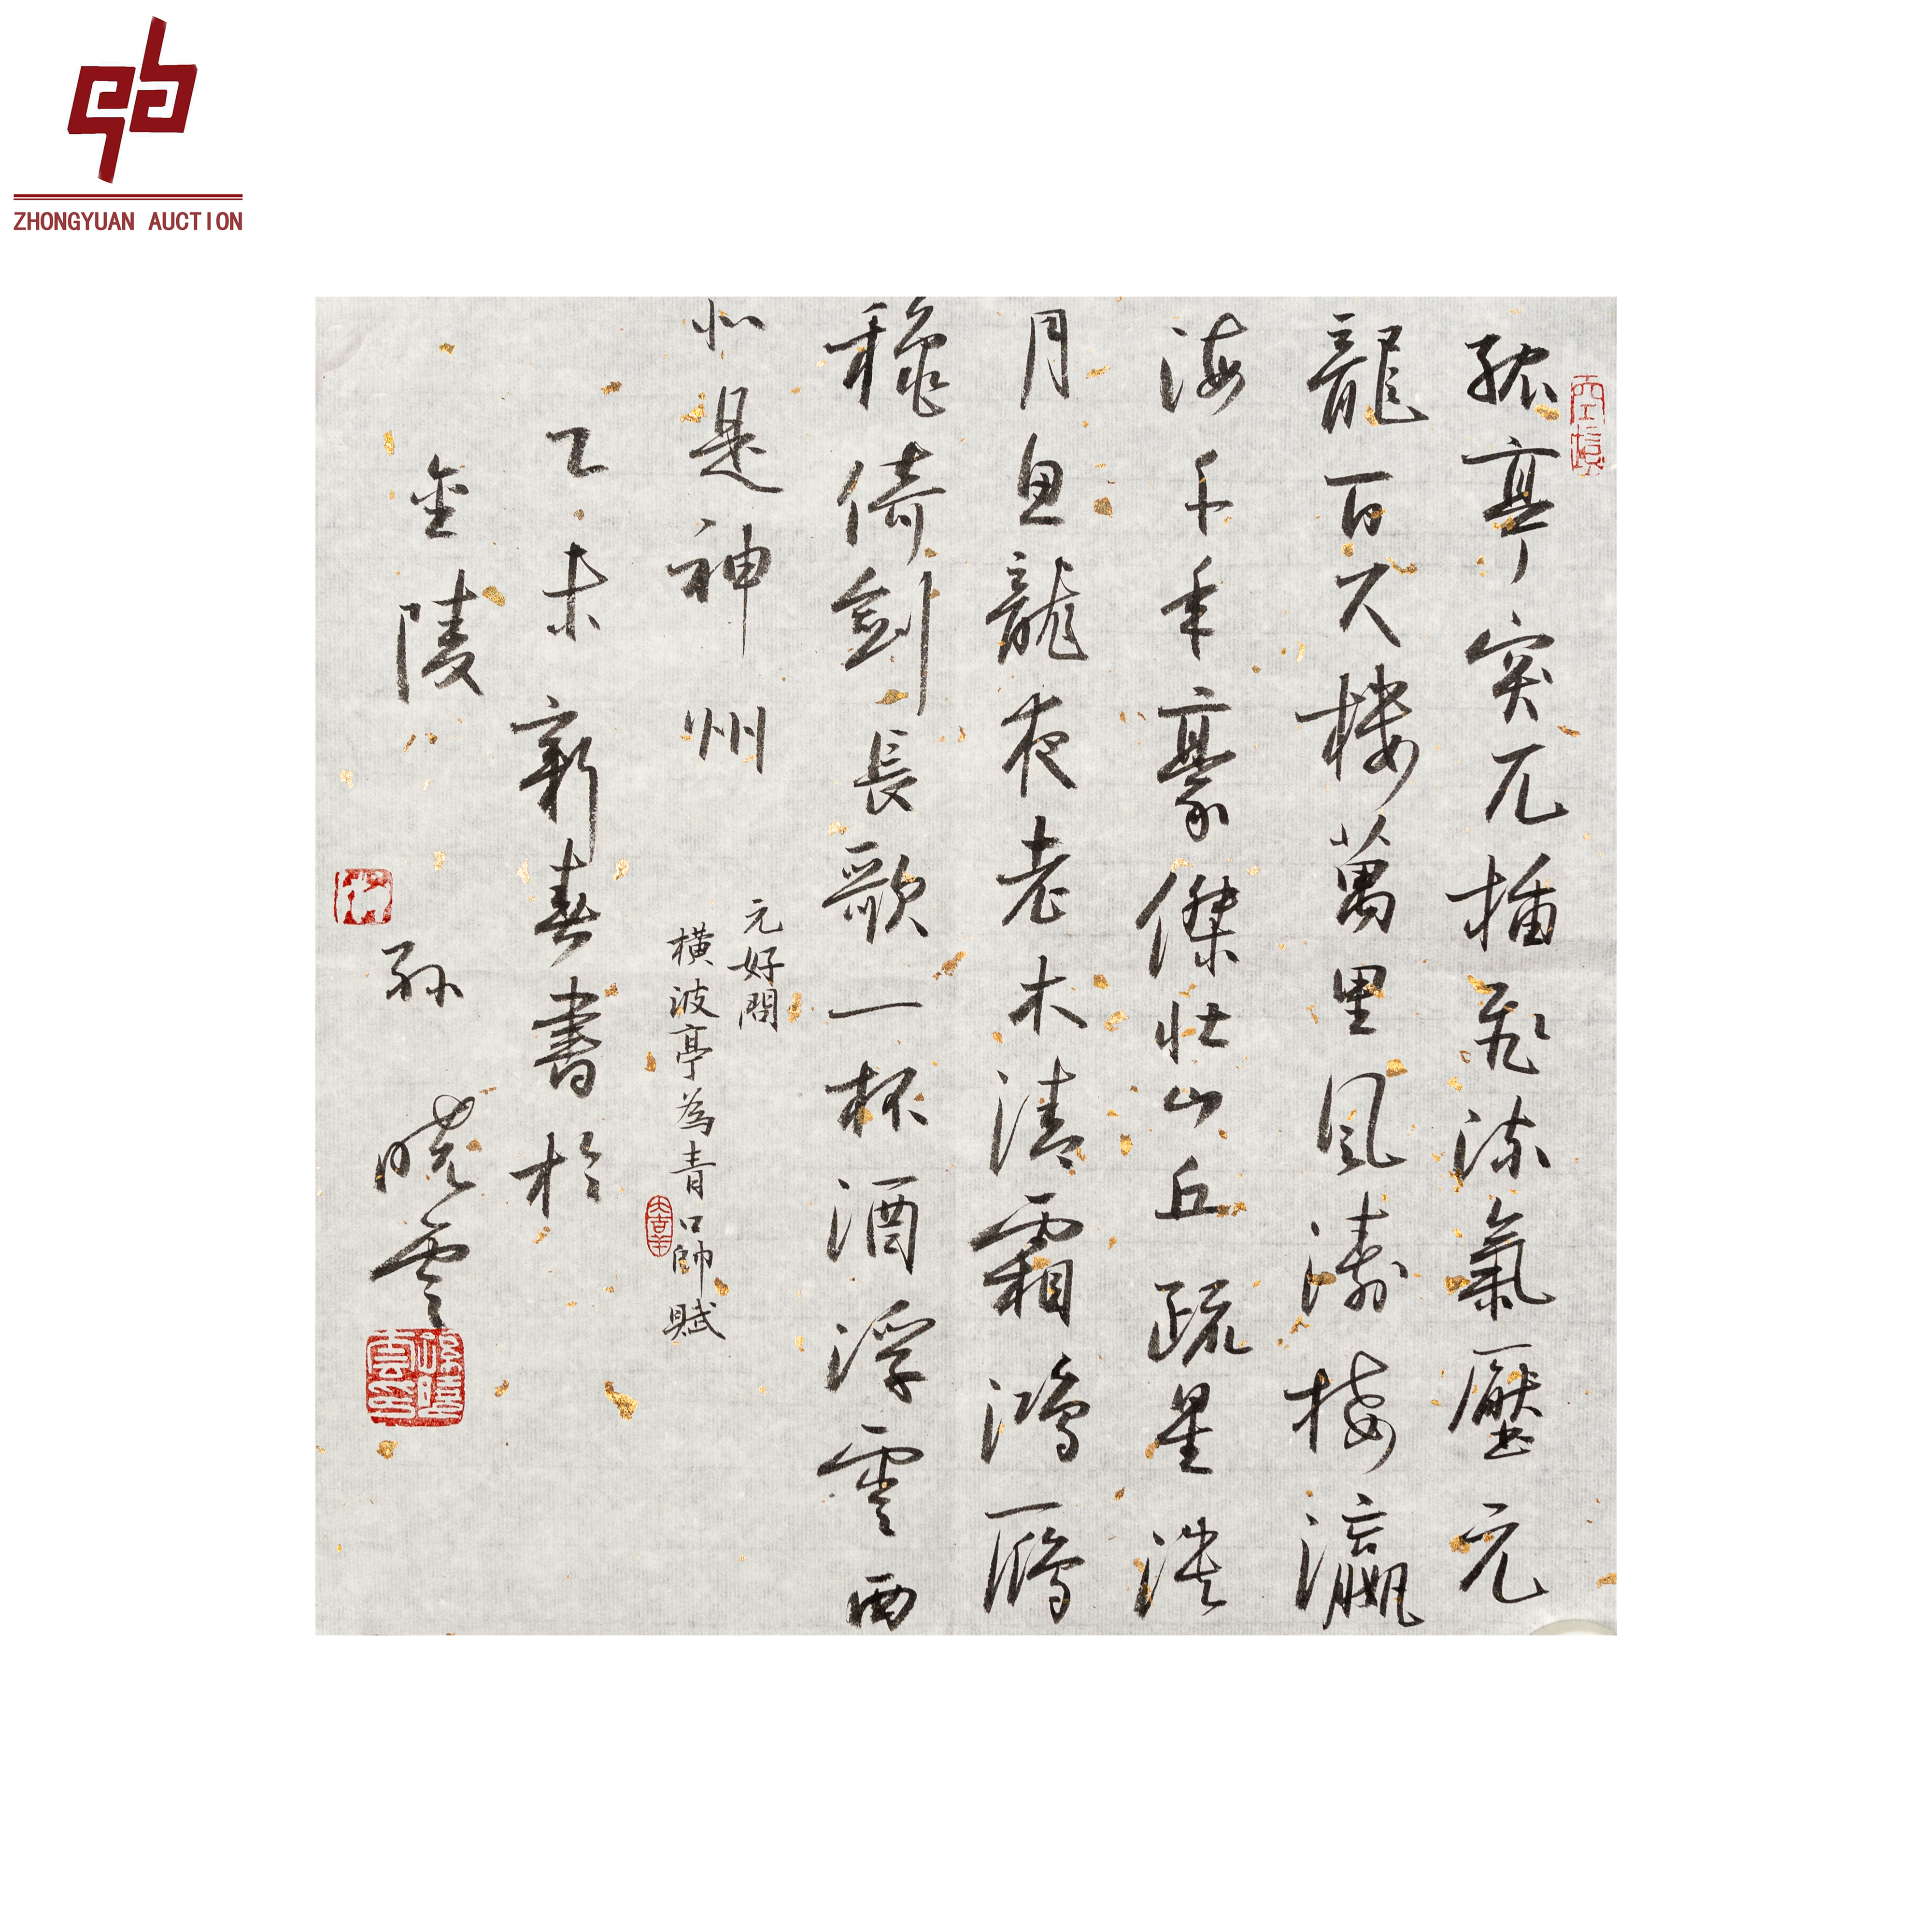 ZHONGYUAN AUCTION
孤亭突兀插飛流氣壓元
龍百尺樓萬里風濤接瀛
海千年豪傑壯山丘疏星淡
月魚龍夜老木清霜鴻鴈
穐倚劍長歌一杯酒浮雲西
北是神州
元好問
橫波亭為青口帥賦
乙未新春書於
金陵 孫曉雲
孫曉雲印